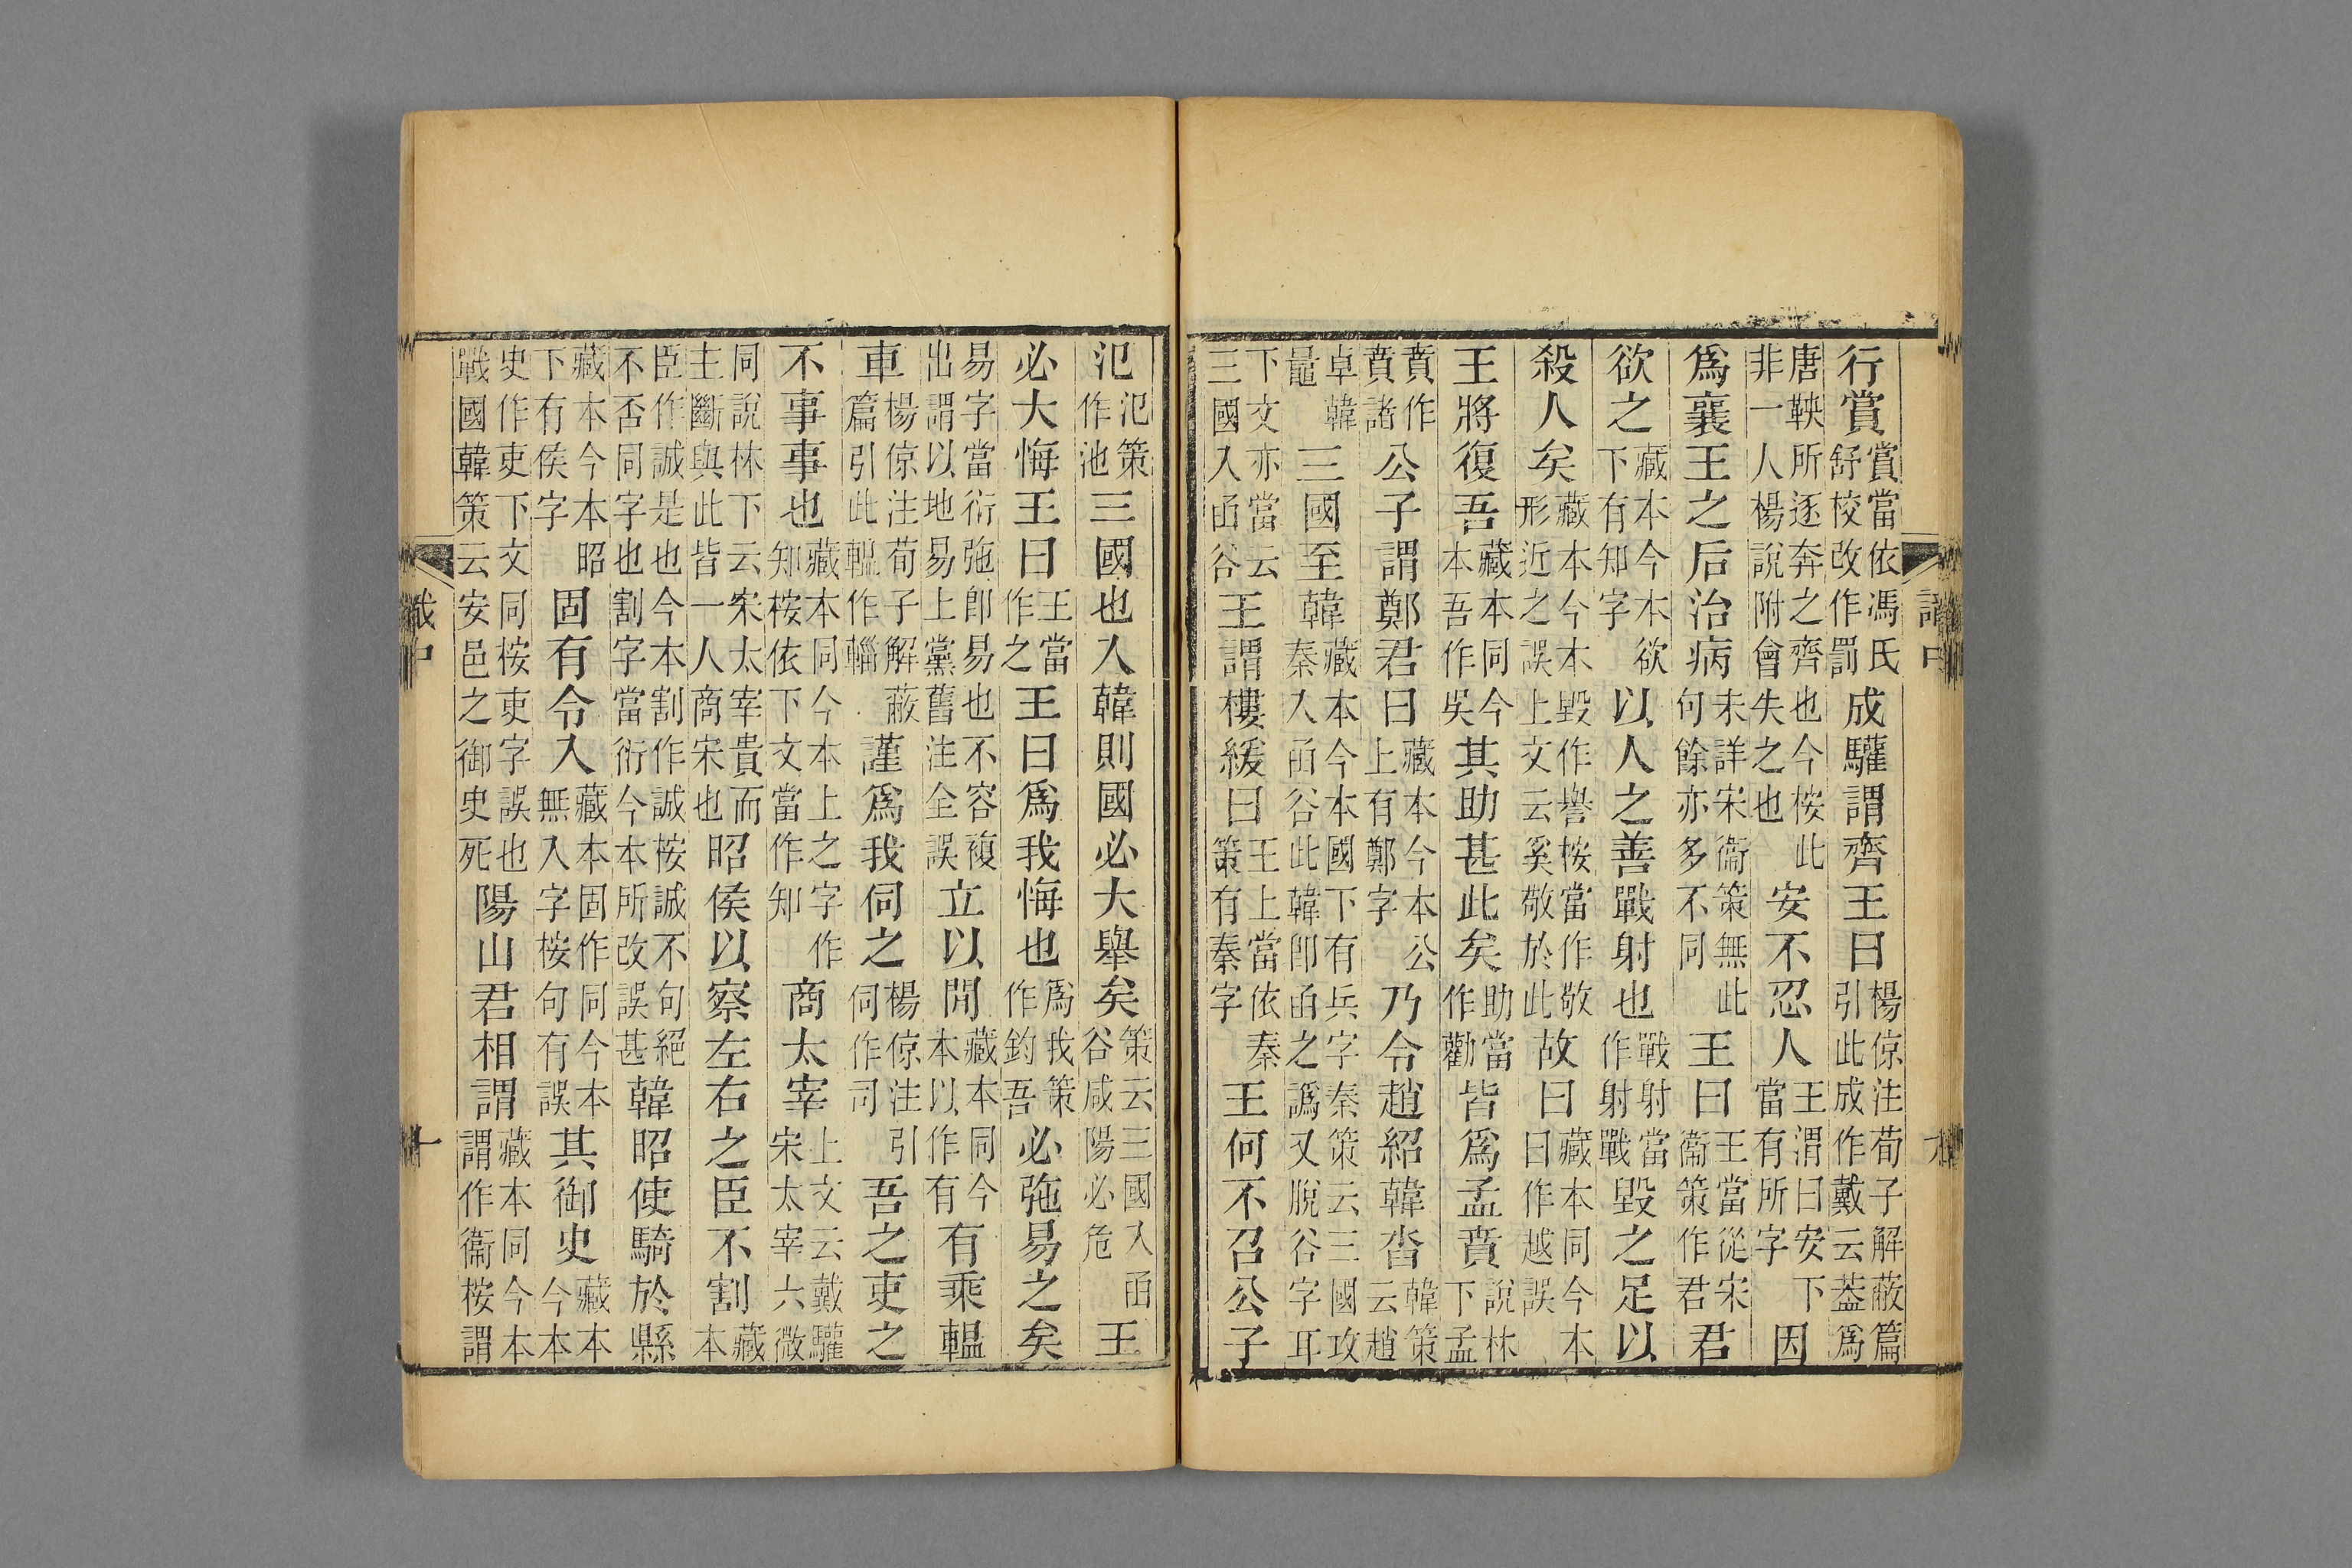 行賞賞當依馮氏舒校改作罰成驩謂齊王曰楊倞注荀子解蔽篇引此成作戴云葢爲
唐鞅所逐奔之齊也今桉此非一人楊說附會失之也安不忍人王渭曰安下當有所字因
爲襄王之后治病未詳宋衞策無此句餘亦多不同王曰王當從宋衞策作君君
欲之藏本今本欲下有知字以人之善戰射也戰射當作射戰毀之足以
殺人矣藏本今本毀作譽桉當作敬形近之誤上文云奚敬於此故曰藏本同今本曰作越誤
王將復吾藏本同今本吾作吳其助甚此矣助當作勸皆爲孟賁說林下孟
賁作賁諸公子謂鄭君曰藏本今本公上有鄭字乃令趙紹韓沓韓策云趙
卓韓鼂三國至韓藏本今本國下有兵字秦策云三國攻秦入函谷此韓卽函之譌又脫谷字耳
下文亦當云三國入函谷王謂樓緩曰王上當依秦策有秦字王何不召公子
氾氾策作池三國也入韓則國必大舉矣策云三國入函谷咸陽必危王
必大悔王曰王當作之王曰爲我悔也爲我策作釣吾必弛易之矣
易字當衍弛卽易也不容複出謂以地易上黨舊注全誤立以閒藏本同今本以作有有乘轀
車楊倞注荀子解蔽篇引此轀作輜謹爲我伺之楊倞注引伺作司吾之吏之
不事事也藏本同今本上之字作知桉依下文當作知商太宰上文云戴驩宋太宰六微
同說林下云宋太宰貴而主斷與此皆一人商宋也昭侯以察左右之臣不割藏本
臣作誠是也今本割作誠桉誠不句絕不否同字也割字當衍今本所改誤甚韓昭使騎於縣
藏本今本昭下有侯字固有令入藏本固作同今本無入字桉句有誤其御史藏本今本
史作吏下文同桉吏字誤也戰國韓策云安邑之御史死陽山君相謂藏本同今本謂作衞桉謂
十